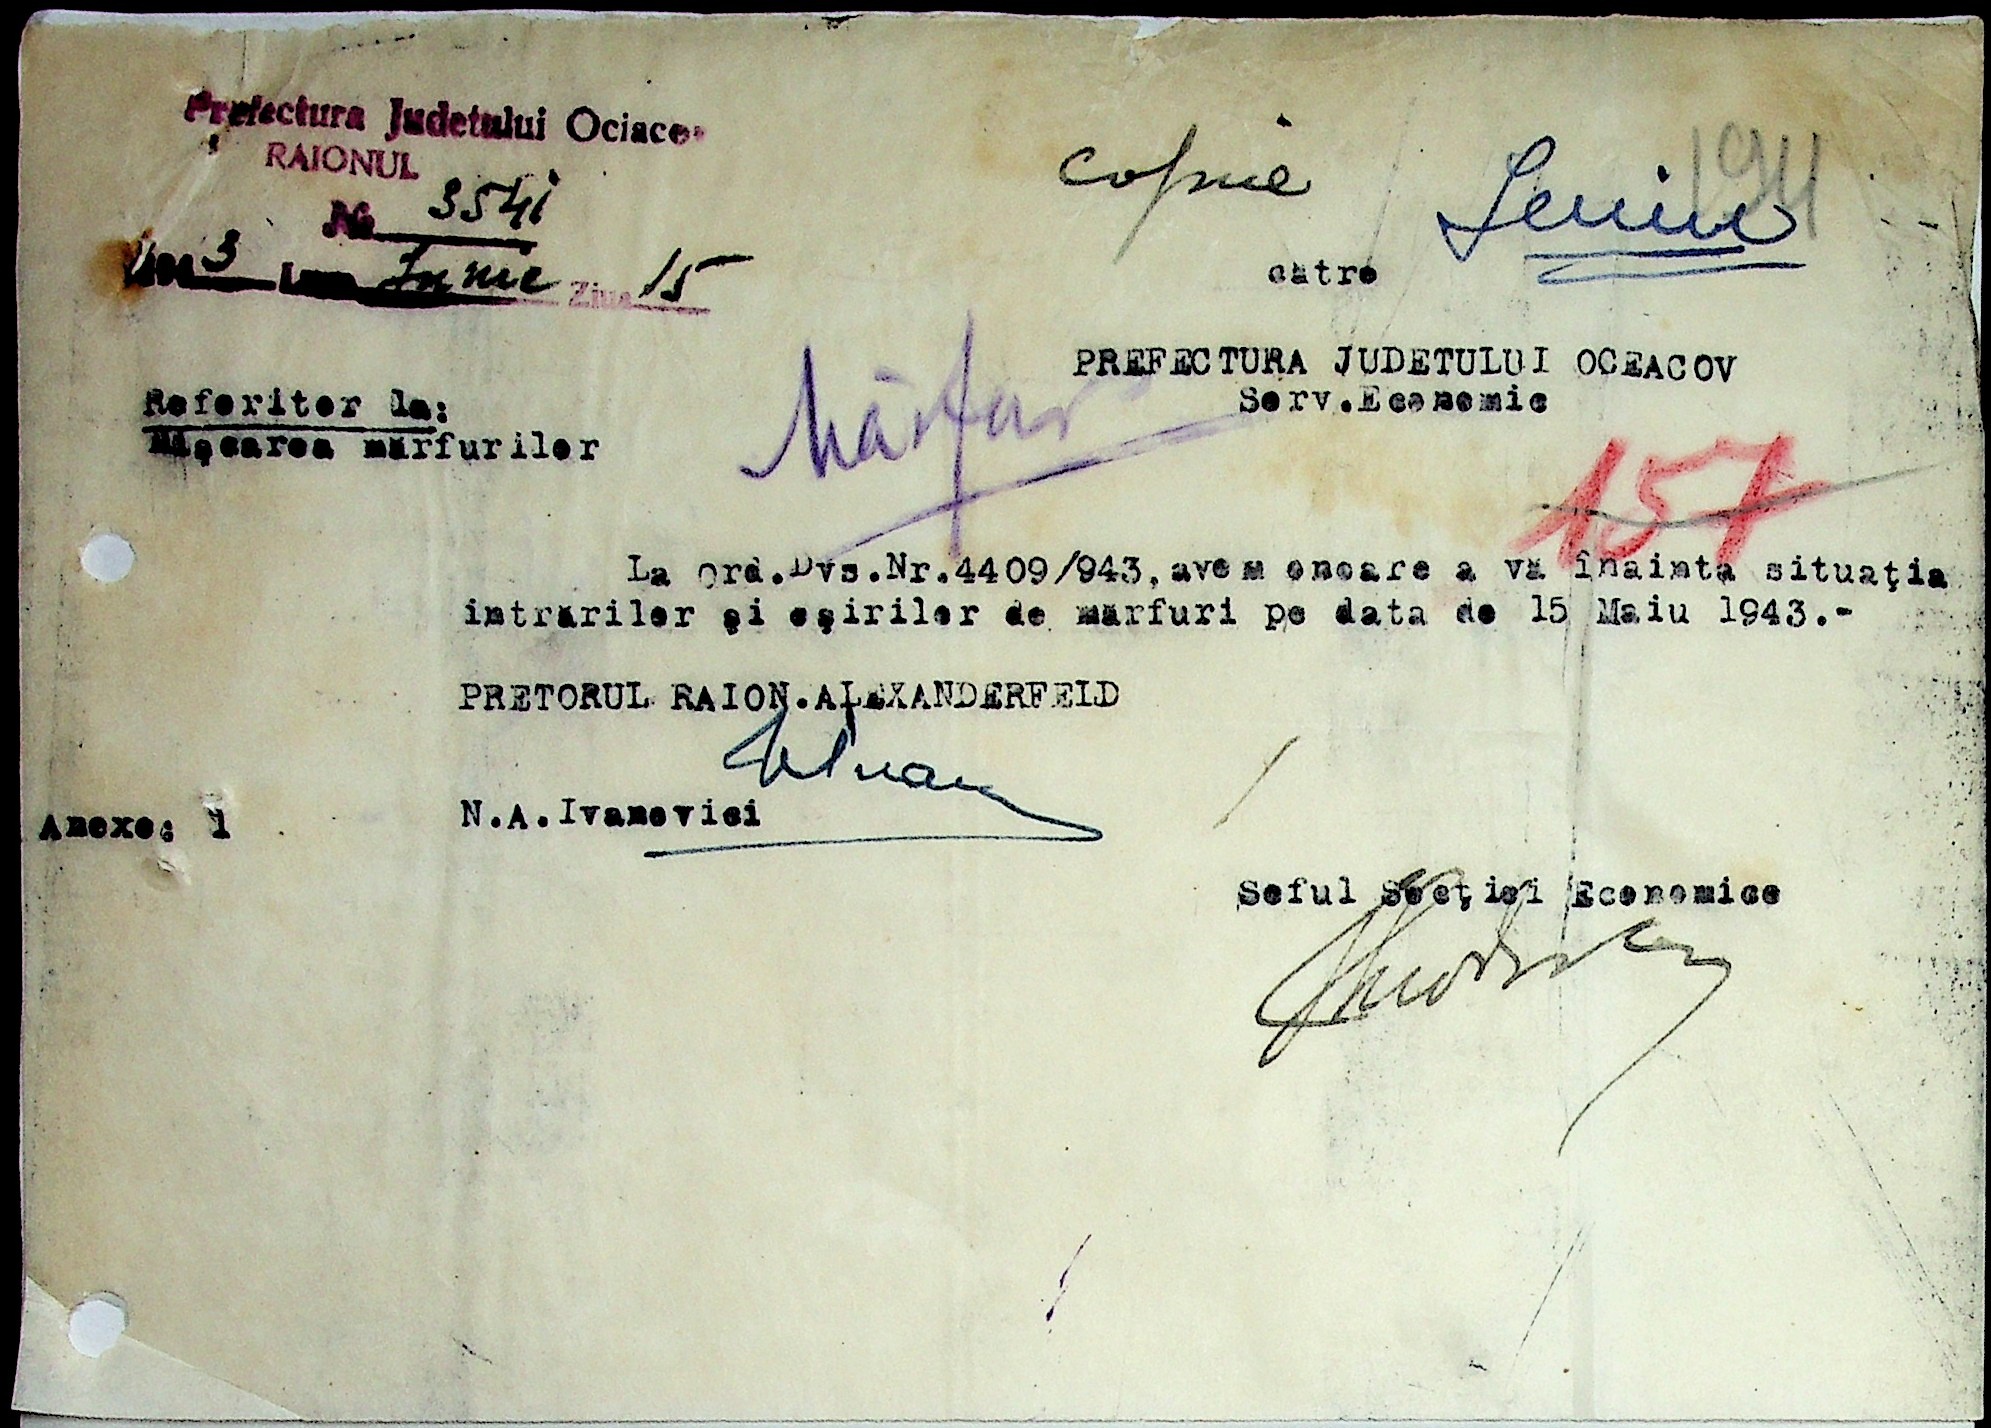 Prefectura Judetului Ociacov
RAIONUL
No 3541
194 3 Luna Iunie Ziua 15
copie
191
către
PREFECTURA JUDETULUI OCEACOV
Serv.Economic
Referitor la:
Mișcarea mărfurilor
Mărfuri
157
La ord.Dvs.Nr.4409/943,avem onoare a vă înainta situația
intrărilor și eșirilor de mărfuri pe data de 15 Maiu 1943.-
PRETORUL RAION.ALEXANDERFELD
N.A.Ivanovici
Anexe: 1
Seful Secției Economice